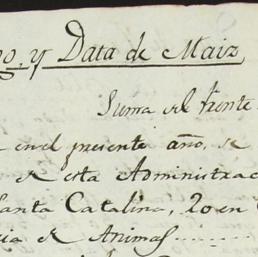 y Data de Maiz
Suma del frente
en el presente año, se
de esta Administrac
Santa Catalina, 20 en
de Animas